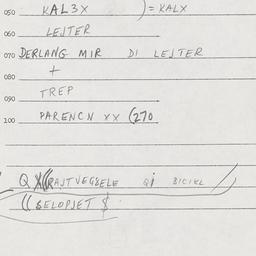 050 KAL3X )= KALX
060 LEJTER
070 DERLANG MIR DI LEJTER
080 +
090 TREP
100 PARENCN XX (270
QI BICIKL
((GELOPJET $